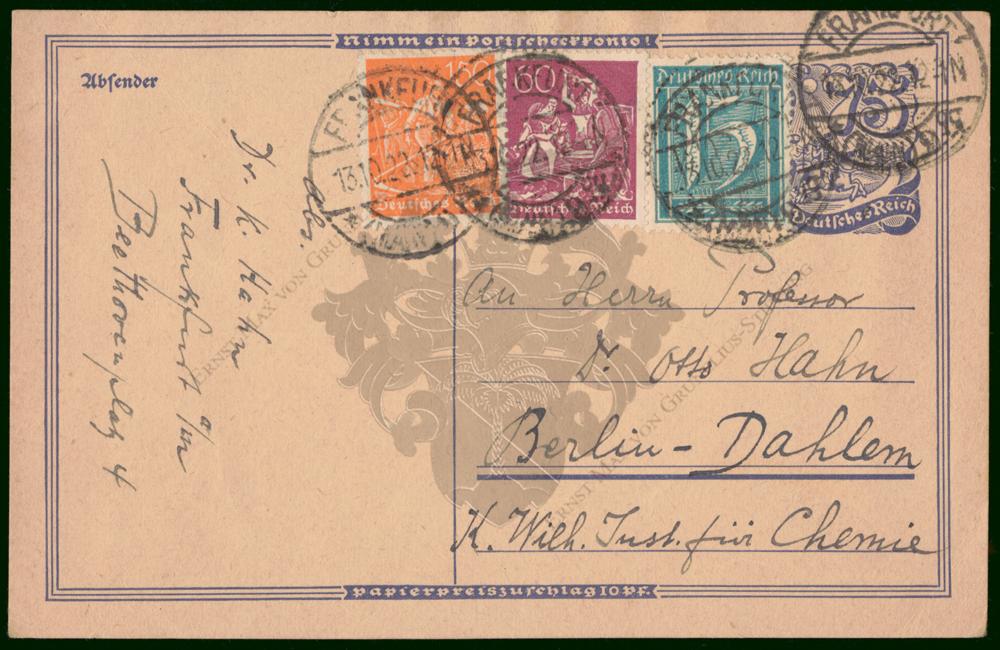 Nimm ein Postscheckkonto!
Absender
Abs.
Dr. K. Hahn
Frankfurt a/m
Beethovenplatz 4
150
Deutsches Reich
60
Deutsches Reich
Deutsches Reich
5
75
Deutsches Reich
FRANKFURT
13.10.22
FRANKFURT
FRANKFURT
FRANKFURT
(MAIN)
An Herrn Professor
Dr. Otto Hahn
Berlin-Dahlem
K. Wilh. Inst. für Chemie
ERNST MAX VON GRUNELIUS-STIFTUNG
ERNST MAX VON GRUNELIUS-STIFTUNG
Papierpreiszuschlag 10 Pf.